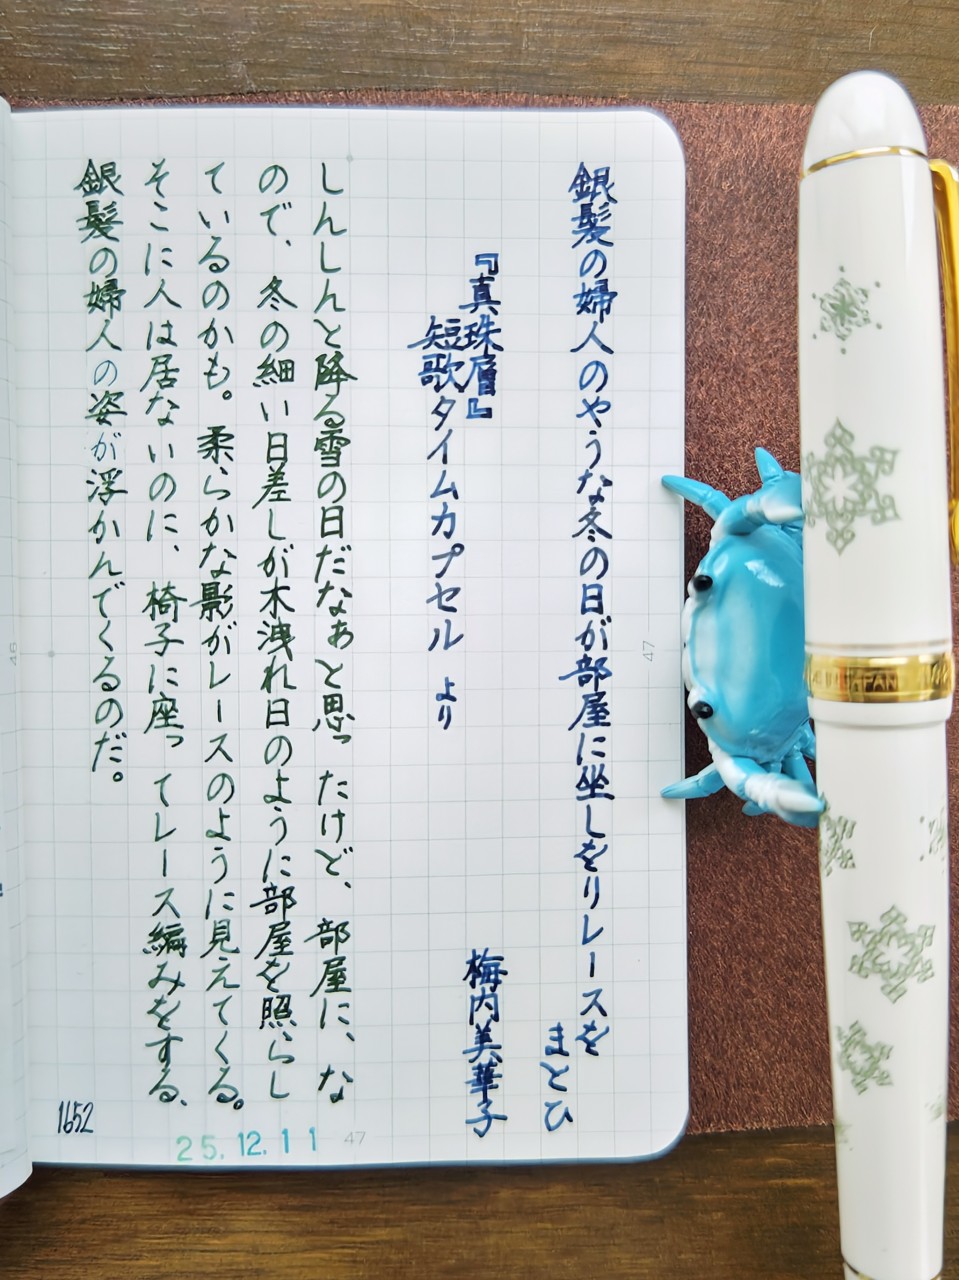 銀髪の婦人のやうな冬の日が部屋に坐しをりレースを
まとひ
『真珠層』
梅内美華子
短歌タイムカプセル より
しんしんと降る雪の日だなぁと思ったけど、部屋に、な
ので、冬の細い日差しが木洩れ日のように部屋を照らし
ているのかも。柔らかな影がレースのように見えてくる。
そこに人は居ないのに、椅子に座ってレース編みをする、
銀髪の婦人の姿が浮かんでくるのだ。
1652
25.12.11
47
47
46